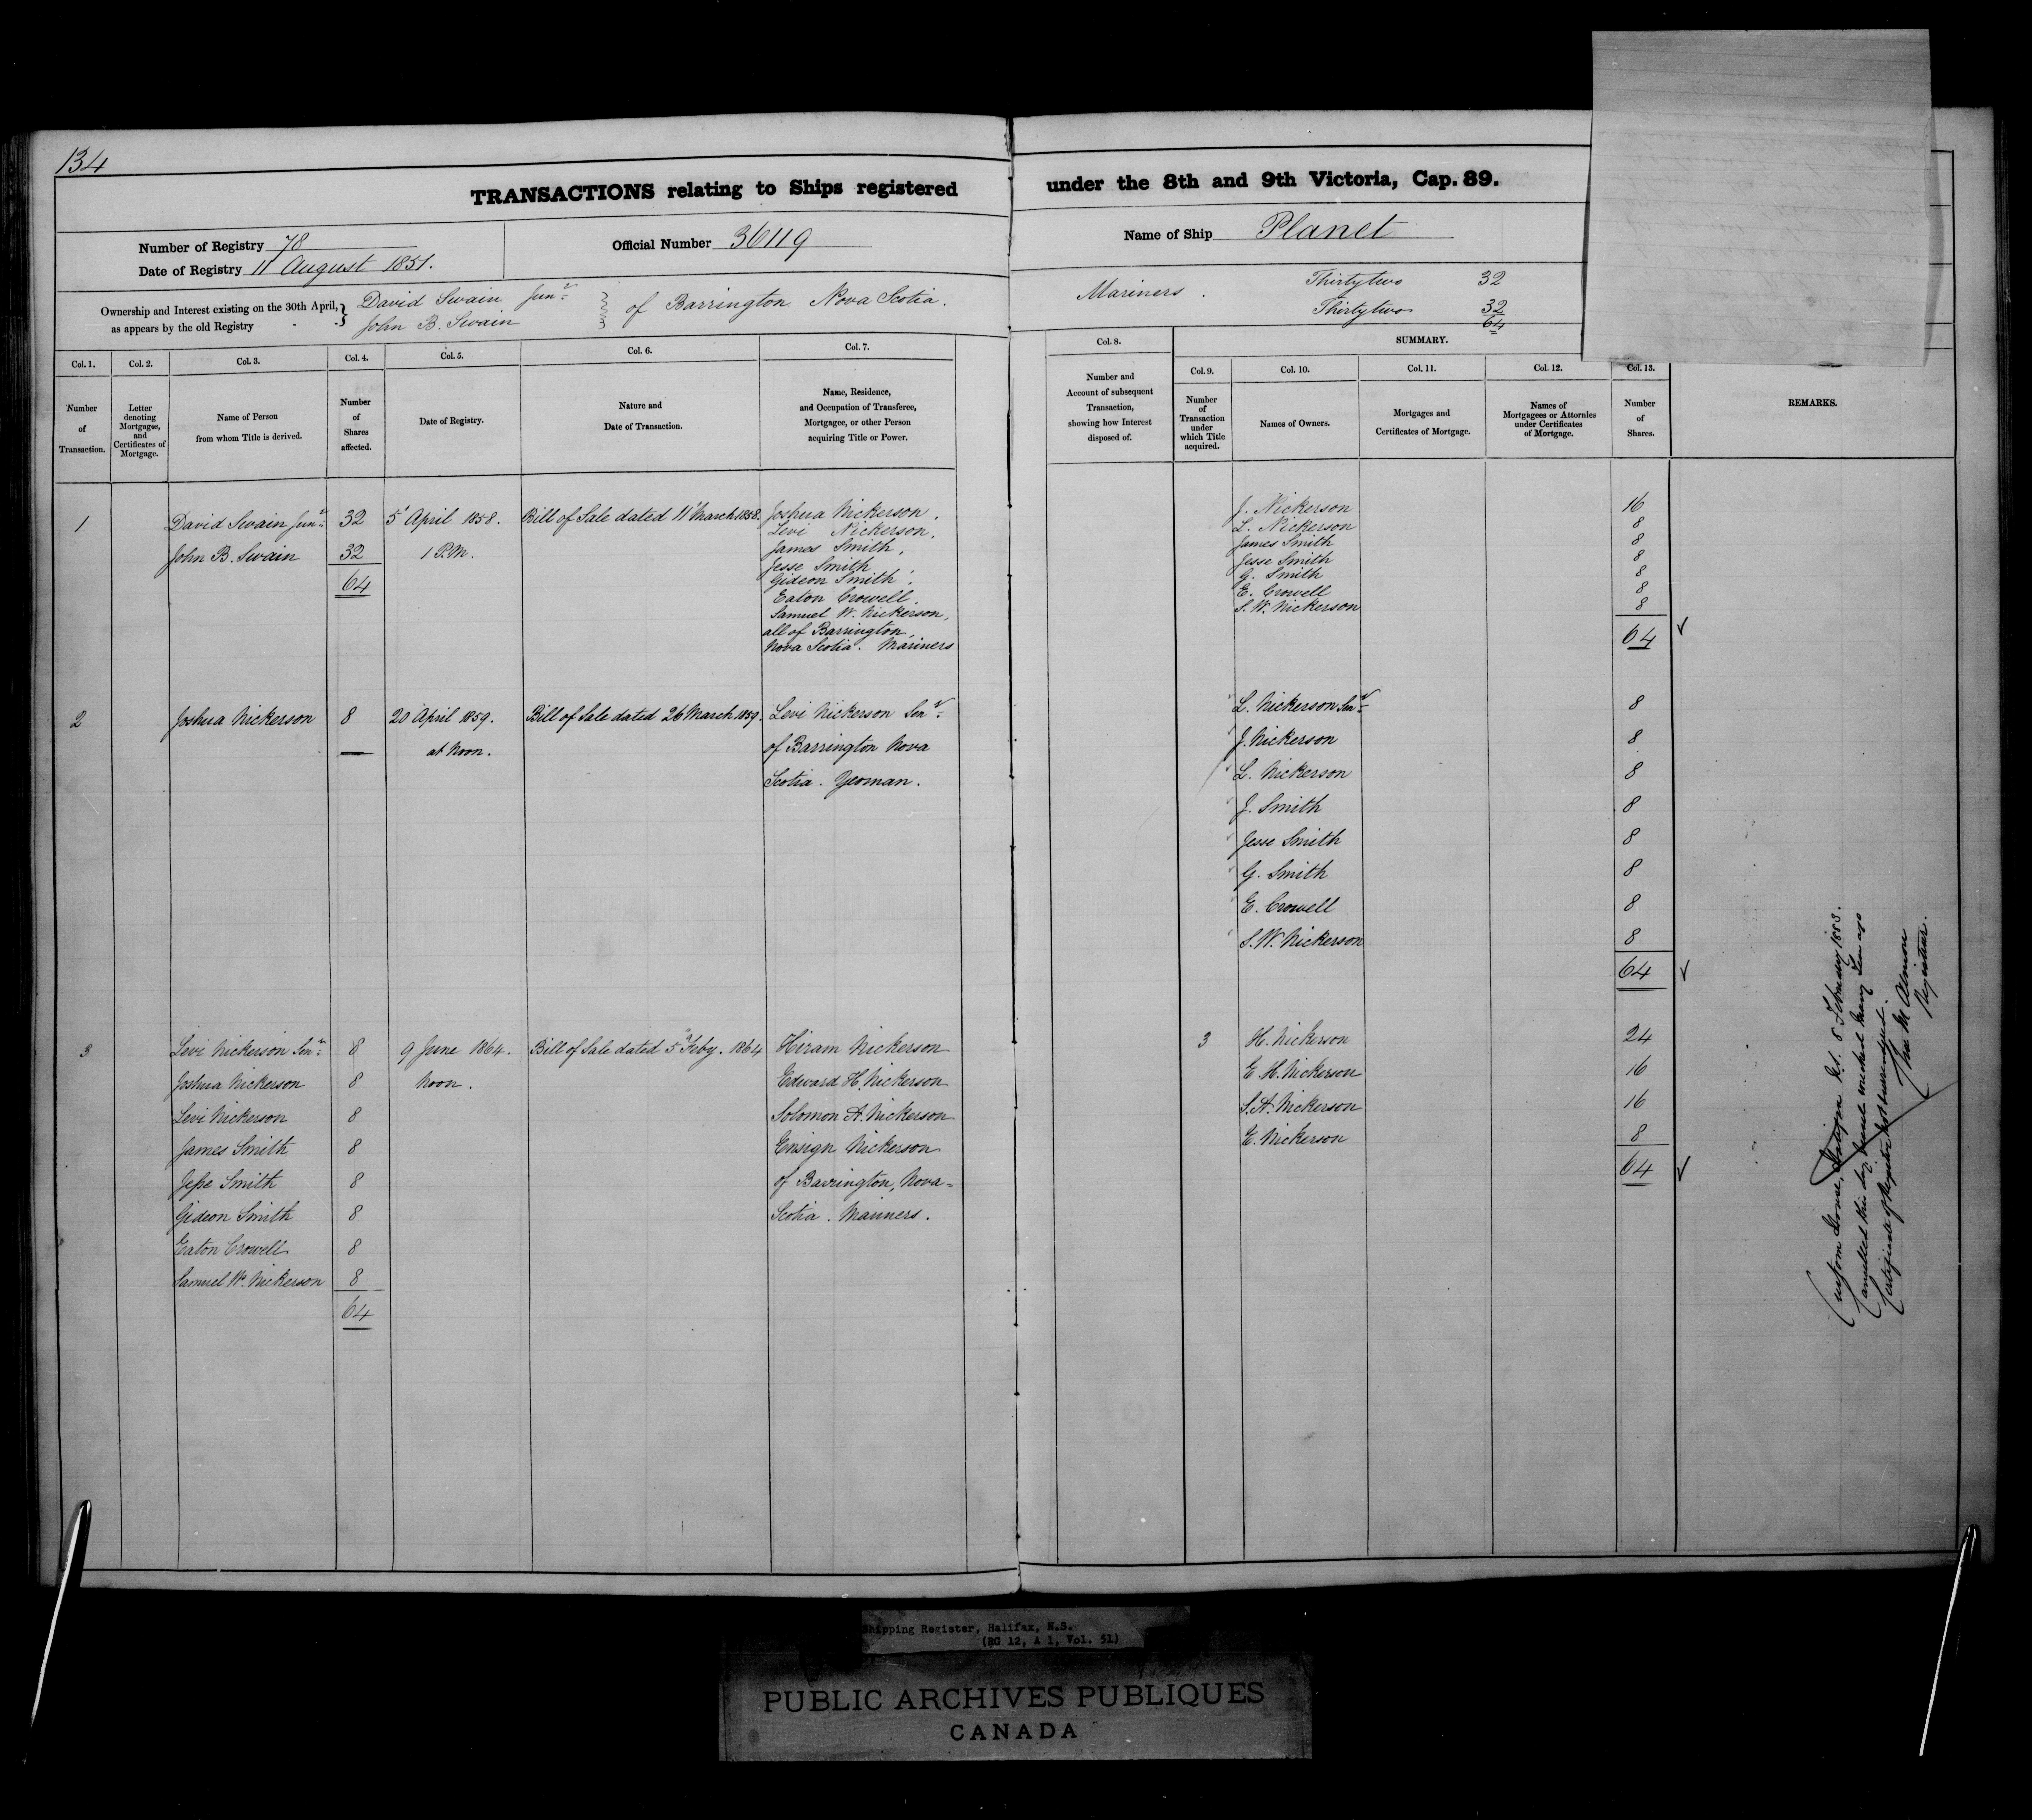 134
TRANSACTIONS relating to Ships registered under the 8th and 9th Victoria, Cap. 89.
Number of Registry 78
Date of Registry 11 August 1851.
Official Number 36119
Name of Ship Planet
Ownership and Interest existing on the 30th April, as appears by the old Registry
David Swain Junr
John B. Swain
of Barrington Nova Scotia.
Mariners. Thirtytwo 32
Thirtytwo 32
64
Col. 1. Number of Transaction.
Col. 2. Letter denoting Mortgages, and Certificates of Mortgage.
Col. 3. Name of Person from whom Title is derived.
Col. 4. Number of Shares affected.
Col. 5. Date of Registry.
Col. 6. Nature and Date of Transaction.
Col. 7. Name, Residence, and Occupation of Transferee, Mortgagee, or other Person acquiring Title or Power.
Col. 8. Number and Account of subsequent Transaction, showing how Interest disposed of.
SUMMARY.
Col. 9. Number of Transaction under which Title acquired.
Col. 10. Names of Owners.
Col. 11. Mortgages and Certificates of Mortgage.
Col. 12. Names of Mortgagees or Attornies under Certificates of Mortgage.
Col. 13. Number of Shares.
REMARKS.
1 David Swain Junr 32 5 April 1858. Bill of Sale dated 11 March 1858. Joshua Nickerson, J. Nickerson 16
Levi Nickerson, L. Nickerson 8
John B. Swain 32 1 P.M. James Smith, James Smith 8
Jesse Smith Jesse Smith 8
64 Gideon Smith, G. Smith 8
Eaton Crowell, E. Crowell 8
Samuel W. Nickerson, S. W. Nickerson 8
all of Barrington, 64
Nova Scotia. Mariners
2 Joshua Nickerson 8 20 April 1859. Bill of Sale dated 26 March 1859. Levi Nickerson Senr L. Nickerson Senr 8
at Noon. of Barrington Nova J. Nickerson 8
Scotia. Yeoman. L. Nickerson 8
J. Smith 8
Jesse Smith 8
G. Smith 8
E. Crowell 8
S. W. Nickerson 8
64
3 Levi Nickerson Senr 8 9 June 1864. Bill of Sale dated 5th Feby. 1864 Hiram Nickerson 3 H. Nickerson 24
Joshua Nickerson 8 Noon. Edward H. Nickerson E. H. Nickerson 16
Levi Nickerson 8 Solomon A. Nickerson S. A. Nickerson 16
James Smith 8 Ensign Nickerson E. Nickerson 8
Jesse Smith 8 of Barrington, Nova= 64
Gideon Smith 8 Scotia. Mariners.
Eaton Crowell 8
Samuel W. Nickerson 8
64
Custom House, 8 February 1883.
Cancelled this day. Vessel wrecked many
Certificate of Register not surrendered.
Registrar.
Shipping Register, Halifax, N.S.
(RG 12, A 1, Vol. 51)
PUBLIC ARCHIVES PUBLIQUES
CANADA